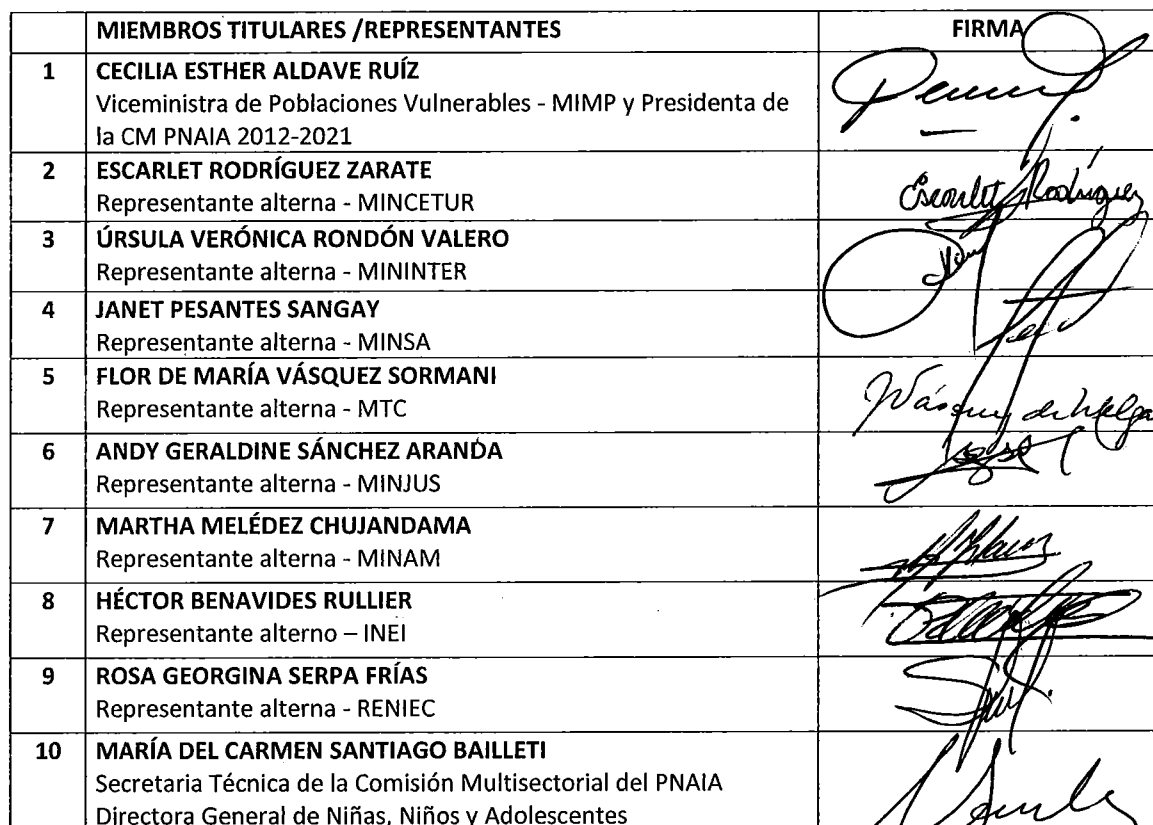 MIEMBROS TITULARES /REPRESENTANTES FIRMA
1 CECILIA ESTHER ALDAVE RUÍZ
Viceministra de Poblaciones Vulnerables - MIMP y Presidenta de
la CM PNAIA 2012-2021
2 ESCARLET RODRÍGUEZ ZARATE
Representante alterna - MINCETUR
Escarlet Rodríguez
3 ÚRSULA VERÓNICA RONDÓN VALERO
Representante alterna - MININTER
4 JANET PESANTES SANGAY
Representante alterna - MINSA
5 FLOR DE MARÍA VÁSQUEZ SORMANI
Representante alterna - MTC
6 ANDY GERALDINE SÁNCHEZ ARANDA
Representante alterna - MINJUS
7 MARTHA MELÉDEZ CHUJANDAMA
Representante alterna - MINAM
8 HÉCTOR BENAVIDES RULLIER
Representante alterno – INEI
9 ROSA GEORGINA SERPA FRÍAS
Representante alterna - RENIEC
10 MARÍA DEL CARMEN SANTIAGO BAILLETI
Secretaria Técnica de la Comisión Multisectorial del PNAIA
Directora General de Niñas, Niños y Adolescentes